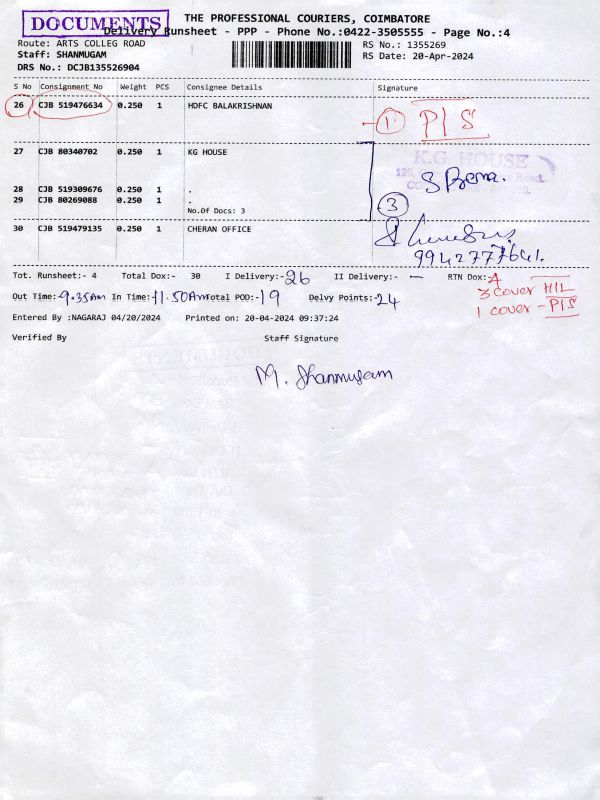 DOCUMENTS
THE PROFESSIONAL COURIERS, COIMBATORE
Delivery Runsheet - PPP - Phone No.:0422-3505555 - Page No.:4
Route: ARTS COLLEG ROAD
RS No.: 1355269
Staff: SHANMUGAM
RS Date: 20-Apr-2024
DRS No.: DCJB135526904
S No Consignment No Weight PCS Consignee Details Signature
26 CJB 519476634 0.250 1 HDFC BALAKRISHNAN
1 P/S
27 CJB 80340702 0.250 1 KG HOUSE
K.G. HOUSE
28 CJB 519309676 0.250 1 .
29 CJB 80269088 0.250 1 .
No.Of Docs: 3
3
30 CJB 519479135 0.250 1 CHERAN OFFICE
9942777641.
Tot. Runsheet:- 4 Total Dox:- 30 I Delivery:- 26 II Delivery:- — RTN Dox:- 4
3 cover H/L
Out Time: 9.35Am In Time: 11.50Am Total POD:- 19 Delvy Points:- 24
1 cover - P/S
Entered By :NAGARAJ 04/20/2024 Printed on: 20-04-2024 09:37:24
Verified By Staff Signature
M. Shanmugam